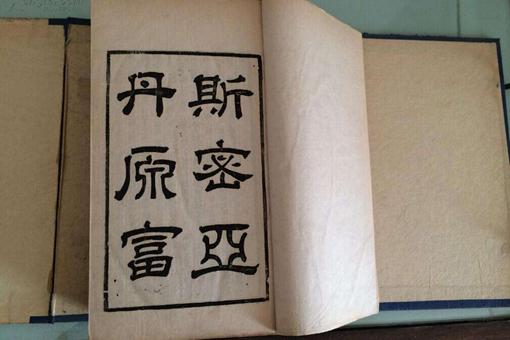 斯密亞
丹原富